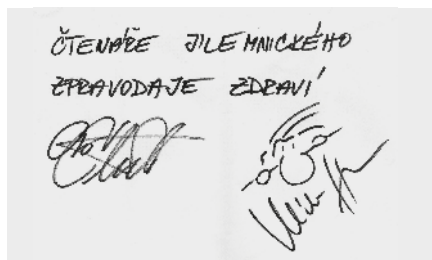 ČTENÁŘE JILEMNICKÉHO
ZPRAVODAJE ZDRAVÍ